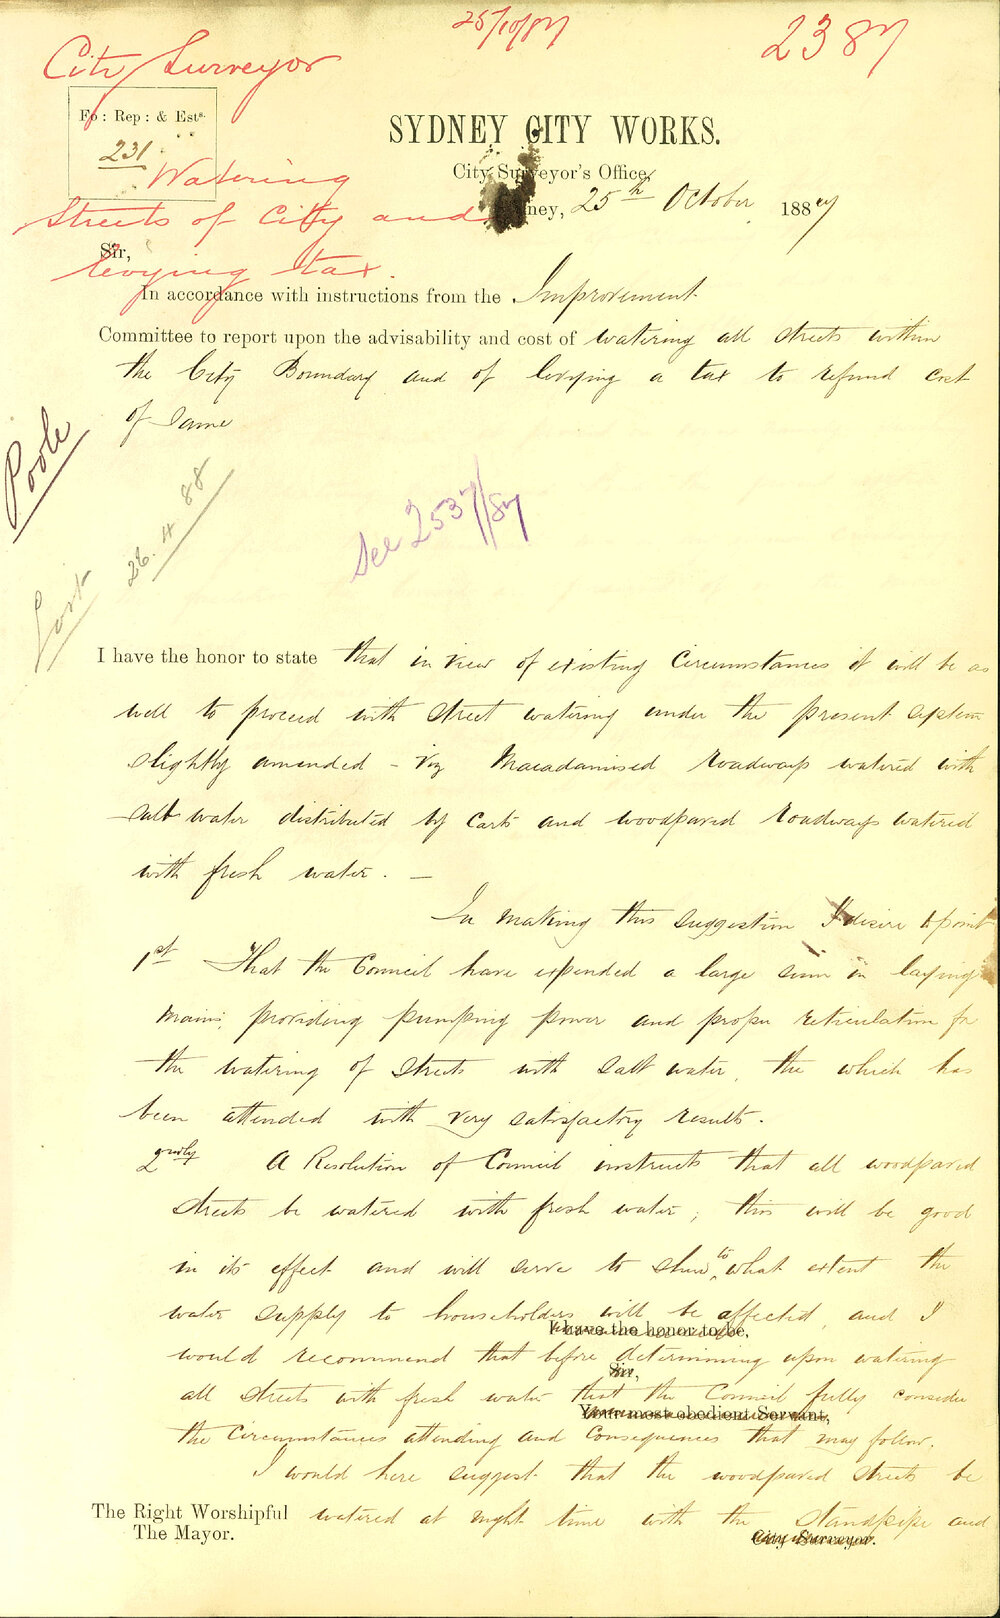 25/10/87
2387
City Surveyor
Fo: Rep: & Ests.
231
Watering
Streets of City and
levying tax.
SYDNEY CITY WORKS.
City Surveyor's Office,
ney, 25th October 1887
Sir,
In accordance with instructions from the Improvement
Committee to report upon the advisability and cost of watering all streets within
the City Boundary and of levying a tax to refund cost
of same
Poole
26.4.88
See 2537/87
I have the honor to state that in view of existing Circumstances it will be as
well to proceed with street watering under the present system
slightly amended - viz Macadamised roadways watered with
salt water distributed by Carts and woodpaved roadways watered
with fresh water. —
In making this suggestion I desire to point
1st That the Council have expended a large sum in laying
mains, providing pumping power and proper reticulation for
the watering of streets with salt water, the which has
been attended with very satisfactory results.
2ndly A Resolution of Council instructs that all woodpaved
streets be watered with fresh water; this will be good
in its effect and will serve to show to what extent the
water supply to householders will be affected, and I
I have the honor to be,
would recommend that before determining upon watering
Sir,
all streets with fresh water that the Council fully consider
Your most obedient Servant,
the Circumstances attending and Consequences that may follow.
I would here suggest that the woodpaved streets be
The Right Worshipful watered at night time with the Standpipe and
The Mayor.
City Surveyor.